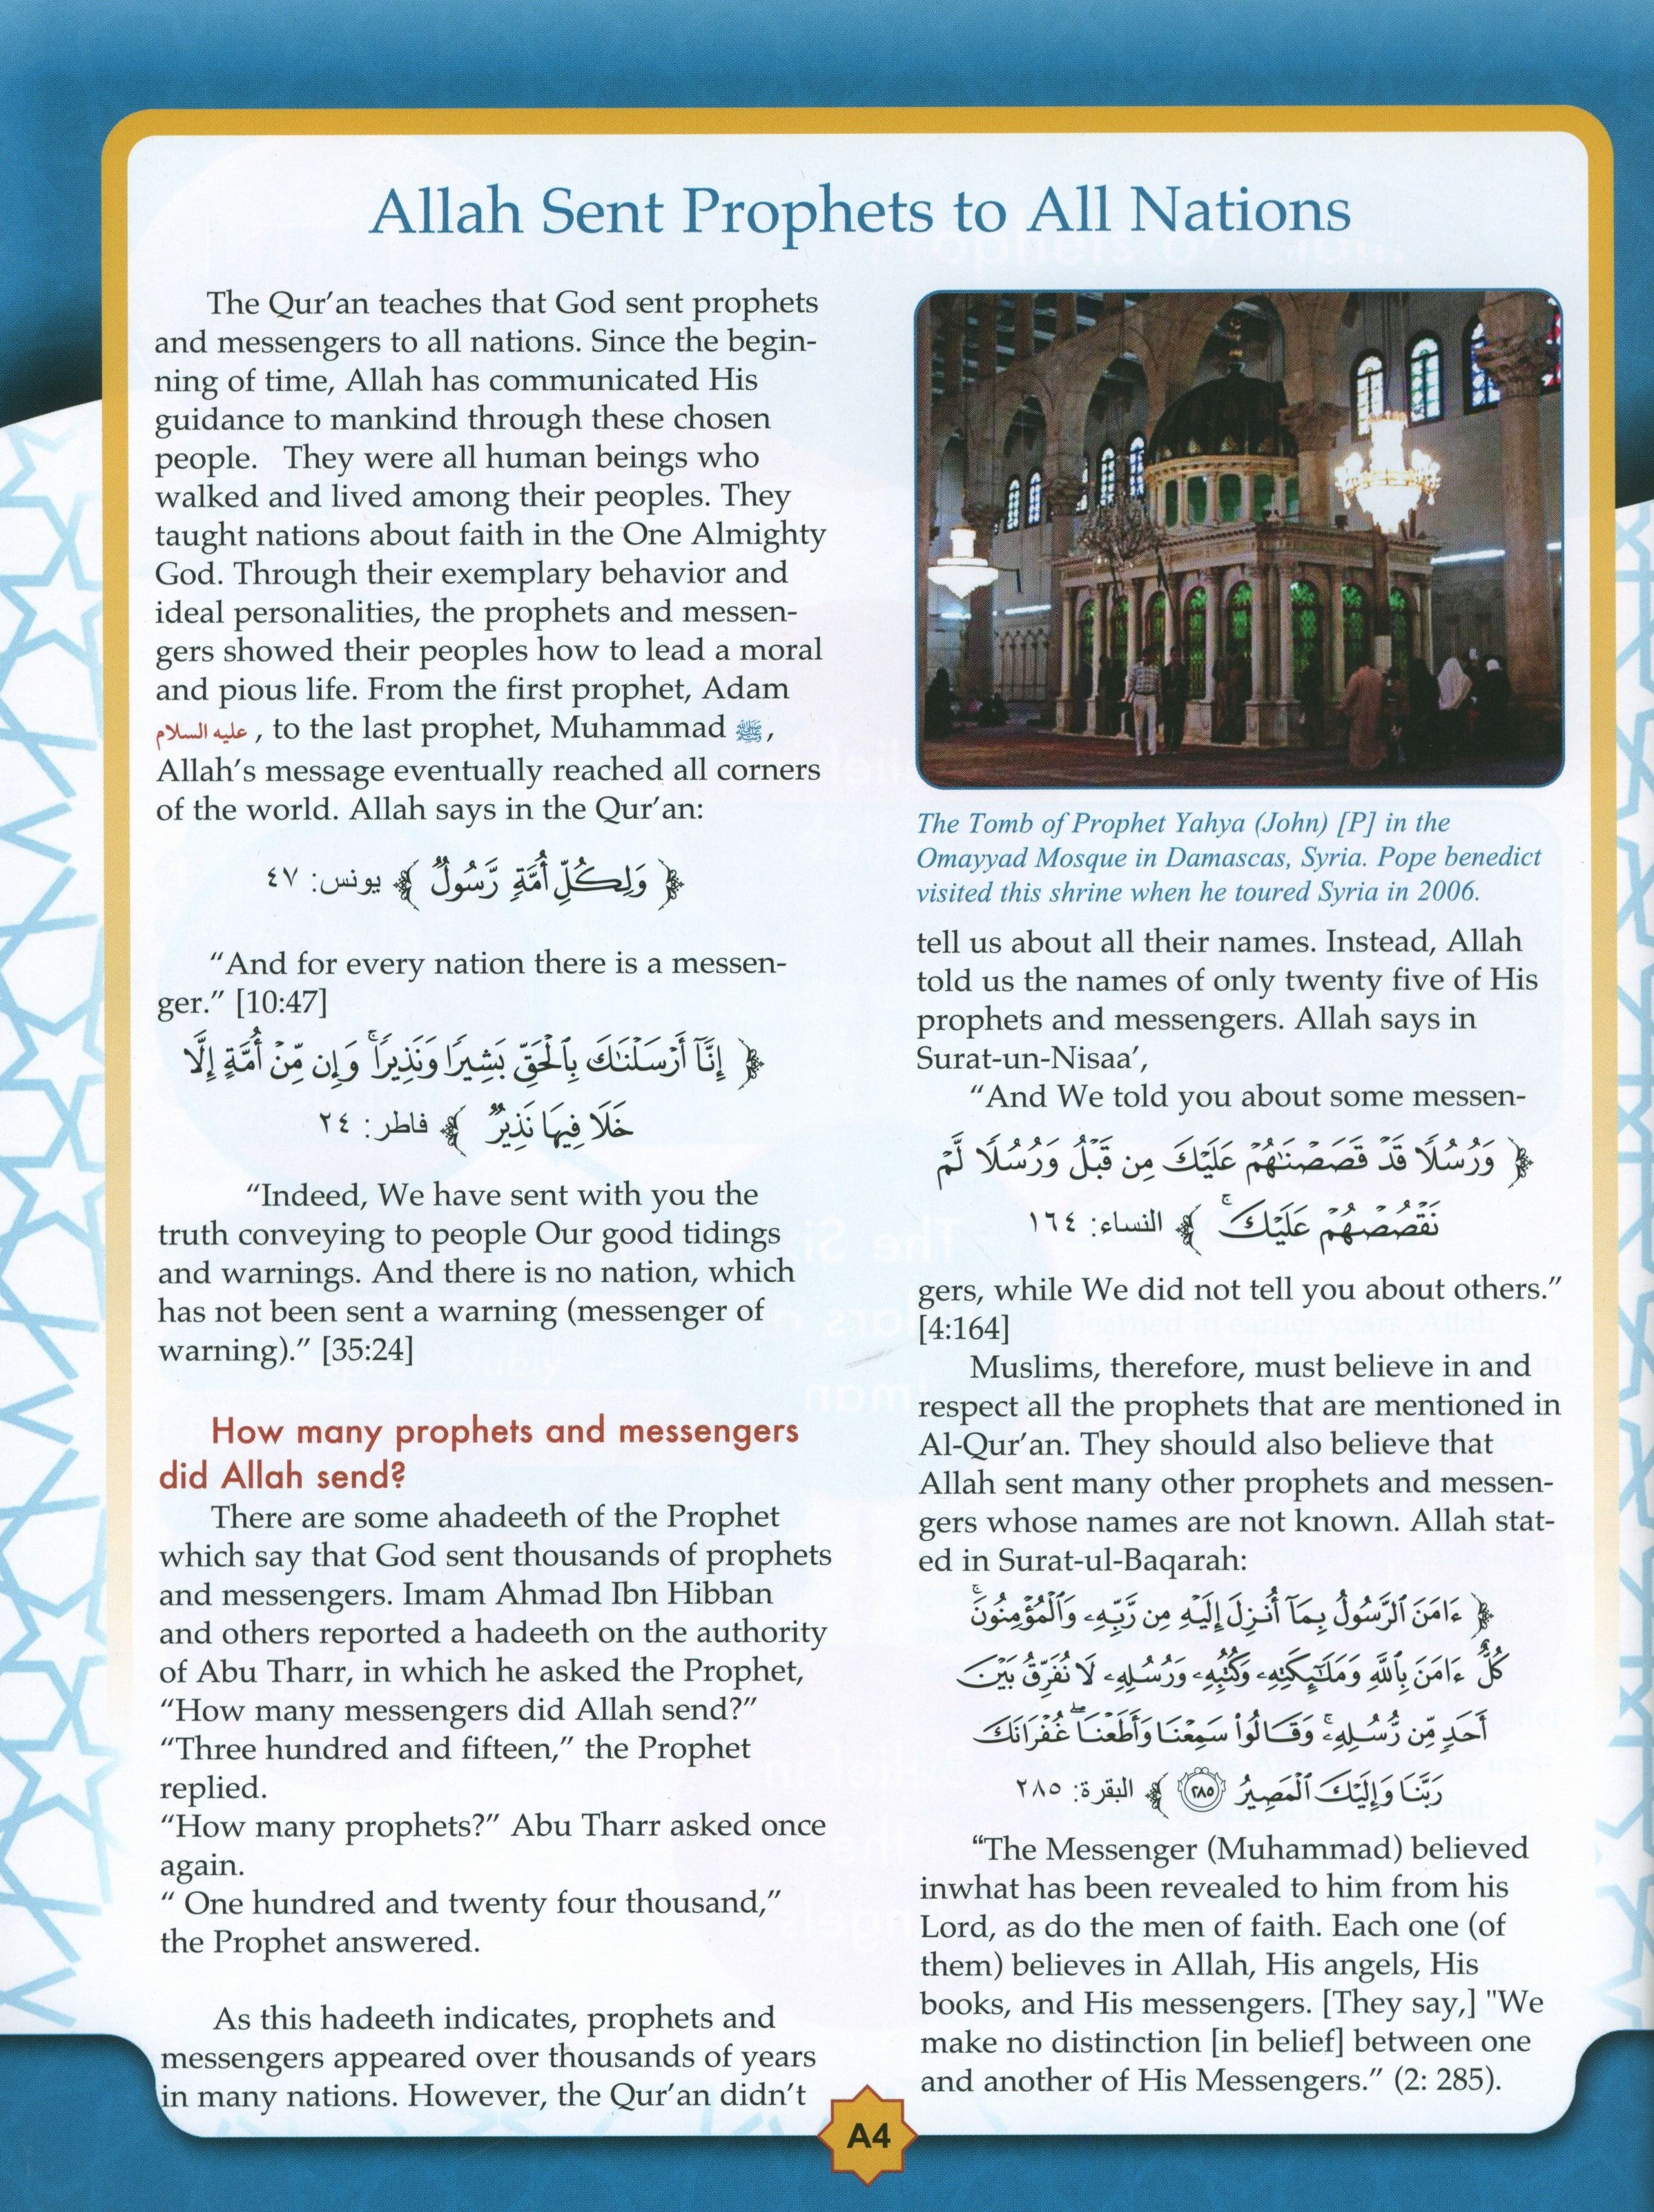 Allah Sent Prophets to All Nations
The Qur’an teaches that God sent prophets
and messengers to all nations. Since the begin-
ning of time, Allah has communicated His
guidance to mankind through these chosen
people.   They were all human beings who
walked and lived among their peoples. They
taught nations about faith in the One Almighty
God. Through their exemplary behavior and
ideal personalities, the prophets and messen-
gers showed their peoples how to lead a moral
and pious life. From the first prophet, Adam
عليه السلام , to the last prophet, Muhammad ﷺ,
Allah’s message eventually reached all corners
of the world. Allah says in the Qur’an:
﴿ وَلِكُلِّ أُمَّةٍ رَّسُولٌ ﴾ يونس: ٤٧
“And for every nation there is a messen-
ger.” [10:47]
﴿ إِنَّآ أَرْسَلْنَٰكَ بِٱلْحَقِّ بَشِيرًا وَنَذِيرًا ۚ وَإِن مِّنْ أُمَّةٍ إِلَّا
خَلَا فِيهَا نَذِيرٌ ﴾ فاطر: ٢٤
“Indeed, We have sent with you the
truth conveying to people Our good tidings
and warnings. And there is no nation, which
has not been sent a warning (messenger of
warning).” [35:24]
How many prophets and messengers
did Allah send?
There are some ahadeeth of the Prophet
which say that God sent thousands of prophets
and messengers. Imam Ahmad Ibn Hibban
and others reported a hadeeth on the authority
of Abu Tharr, in which he asked the Prophet,
“How many messengers did Allah send?”
“Three hundred and fifteen,” the Prophet
replied.
“How many prophets?” Abu Tharr asked once
again.
“ One hundred and twenty four thousand,”
the Prophet answered.
As this hadeeth indicates, prophets and
messengers appeared over thousands of years
in many nations. However, the Qur’an didn’t
The Tomb of Prophet Yahya (John) [P] in the
Omayyad Mosque in Damascas, Syria. Pope benedict
visited this shrine when he toured Syria in 2006.
tell us about all their names. Instead, Allah
told us the names of only twenty five of His
prophets and messengers. Allah says in
Surat-un-Nisaa’,
“And We told you about some messen-
﴿ وَرُسُلًا قَدْ قَصَصْنَٰهُمْ عَلَيْكَ مِن قَبْلُ وَرُسُلًا لَّمْ
نَقْصُصْهُمْ عَلَيْكَ ۚ ﴾ النساء: ١٦٤
gers, while We did not tell you about others.”
[4:164]
Muslims, therefore, must believe in and
respect all the prophets that are mentioned in
Al-Qur’an. They should also believe that
Allah sent many other prophets and messen-
gers whose names are not known. Allah stat-
ed in Surat-ul-Baqarah:
﴿ ءَامَنَ ٱلرَّسُولُ بِمَآ أُنزِلَ إِلَيْهِ مِن رَّبِّهِۦ وَٱلْمُؤْمِنُونَ ۚ
كُلٌّ ءَامَنَ بِٱللَّهِ وَمَلَٰٓئِكَتِهِۦ وَكُتُبِهِۦ وَرُسُلِهِۦ لَا نُفَرِّقُ بَيْنَ
أَحَدٍ مِّن رُّسُلِهِۦ ۚ وَقَالُوا۟ سَمِعْنَا وَأَطَعْنَا ۖ غُفْرَانَكَ
رَبَّنَا وَإِلَيْكَ ٱلْمَصِيرُ ٢٨٥ ﴾ البقرة: ٢٨٥
“The Messenger (Muhammad) believed
inwhat has been revealed to him from his
Lord, as do the men of faith. Each one (of
them) believes in Allah, His angels, His
books, and His messengers. [They say,] "We
make no distinction [in belief] between one
and another of His Messengers.” (2: 285).
A4